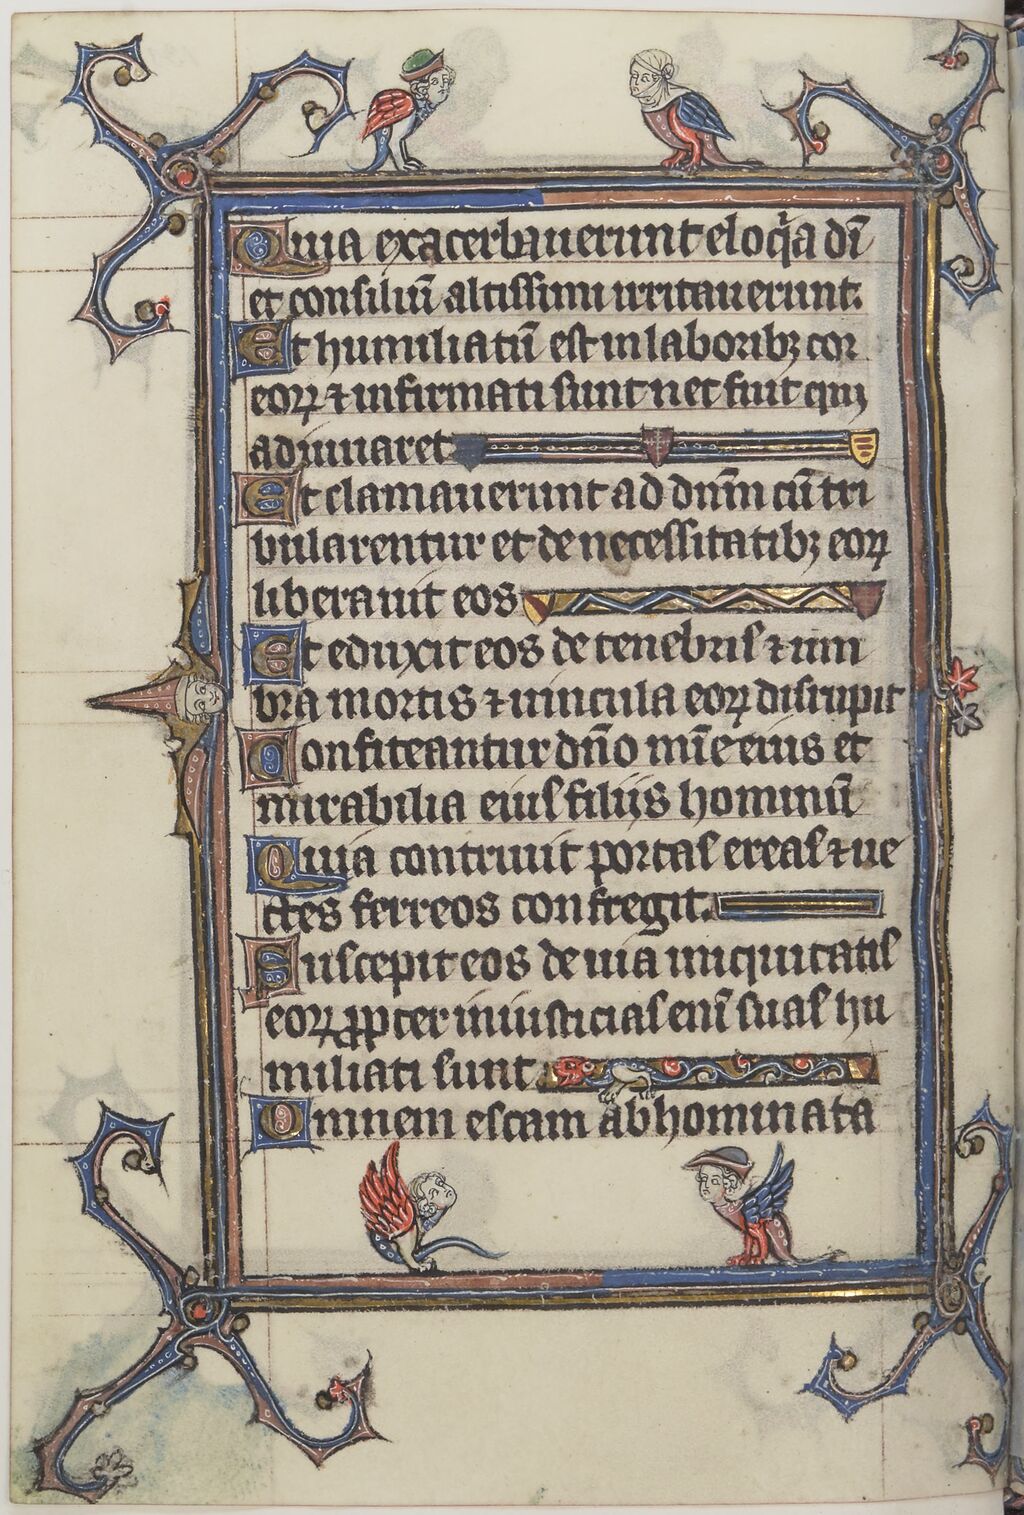 Quia exacerbauerunt eloq̇a dī
et consiliū altissimi irritauerunt.
Et humiliatū est in laboribꝫ cor
eoꝝ ⁊ infirmati sunt nec fuit qui
adiuuaret
Et clamauerunt ad dn̄m cū tri
bularentur et de necessitatibꝫ eoꝝ
liberauit eos
Et eduxit eos de tenebris ⁊ um
bra mortis ⁊ uincula eoꝝ disrupit
Confiteantur dn̄o mīe eius et
mirabilia eius filiis hominū
Quia contriuit portas ereas ⁊ ue
ctes ferreos confregit.
Suscepit eos de uia iniquitatis
eoꝝ ꝓpter iniusticias enī suas hu
miliati sunt
Omnem escam abhominata